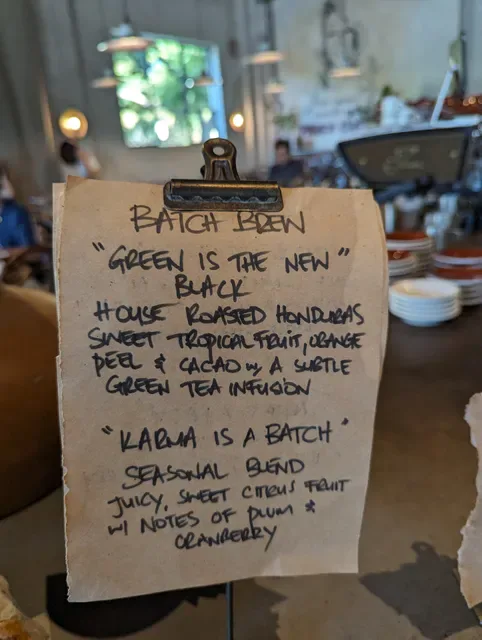 BATCH BREW
"GREEN IS THE NEW"
BLACK
HOUSE ROASTED HONDURAS
SWEET TROPICAL FRUIT, ORANGE
PEEL & CACAO w/ A SUBTLE
GREEN TEA INFUSION
"KARMA IS A BATCH"
SEASONAL BLEND
JUICY, SWEET CITRUS FRUIT
w/ NOTES OF PLUM &
CRANBERRY